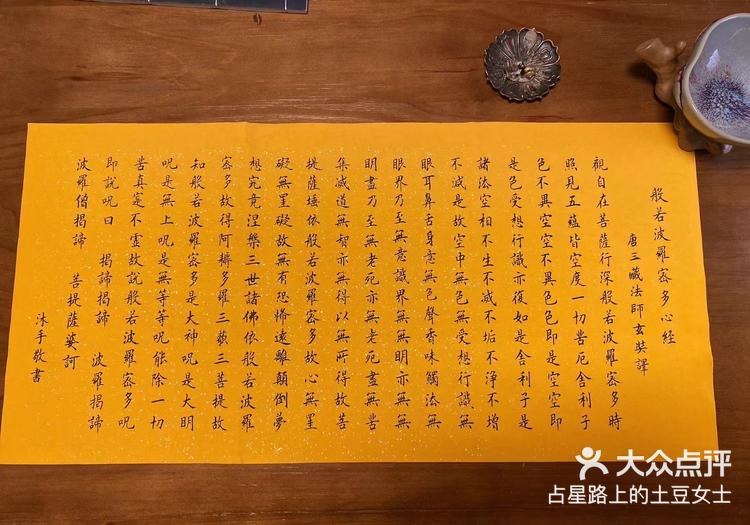 般若波羅密多心經
唐三藏法師玄奘譯
觀自在菩薩行深般若波羅密多時
照見五蘊皆空度一切苦厄舍利子
色不異空空不異色色即是空空即
是色受想行識亦復如是舍利子是
諸法空相不生不滅不垢不淨不增
不滅是故空中無色無受想行識無
眼耳鼻舌身意無色聲香味觸法無
眼界乃至無意識界無無明亦無無
明盡乃至無老死亦無老死盡無苦
集滅道無智亦無得以無所得故菩
提薩埵依般若波羅密多故心無罣
礙無罣礙故無有恐怖遠離顛倒夢
想究竟涅槃三世諸佛依般若波羅
密多故得阿耨多羅三藐三菩提故
知般若波羅密多是大神呪是大明
呪是無上呪是無等等呪能除一切
苦真實不虛故說般若波羅密多呪
即說呪曰 揭諦揭諦 波羅揭諦
波羅僧揭諦 菩提薩婆訶
沐手敬書
大众点评
占星路上的土豆女士